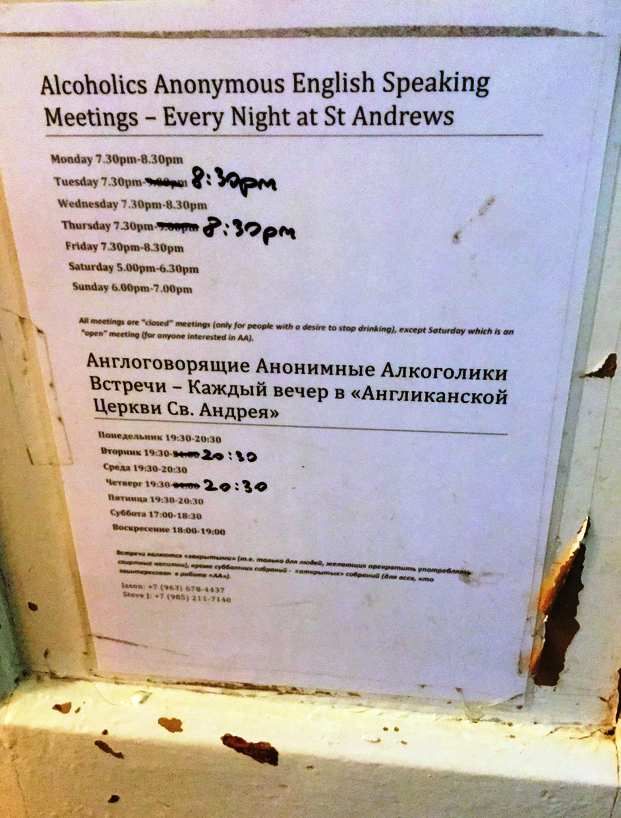 Alcoholics Anonymous English Speaking
Meetings – Every Night at St Andrews
Monday 7.30pm-8.30pm
Tuesday 7.30pm-9.00pm 8:30pm
Wednesday 7.30pm-8.30pm
Thursday 7.30pm-9.00pm 8:30pm
Friday 7.30pm-8.30pm
Saturday 5.00pm-6.30pm
Sunday 6.00pm-7.00pm
All meetings are "closed" meetings (only for people with a desire to stop drinking), except Saturday which is an
"open" meeting (for anyone interested in AA).
Англоговорящие Анонимные Алкоголики
Встречи – Каждый вечер в «Англиканской
Церкви Св. Андрея»
Понедельник 19:30-20:30
Вторник 19:30-21:00 20:30
Среда 19:30-20:30
Четверг 19:30-21:00 20:30
Пятница 19:30-20:30
Суббота 17:00-18:30
Воскресение 18:00-19:00
Встречи являются «закрытыми» (т.е. только для людей, желающих прекратить употреблять
спиртные напитки), кроме субботних собраний - «открытых» собраний (для всех, кто
заинтересован в работе «АА»).
Jason: +7 (963) 678-4437
Steve J: +7 (985) 211-7140